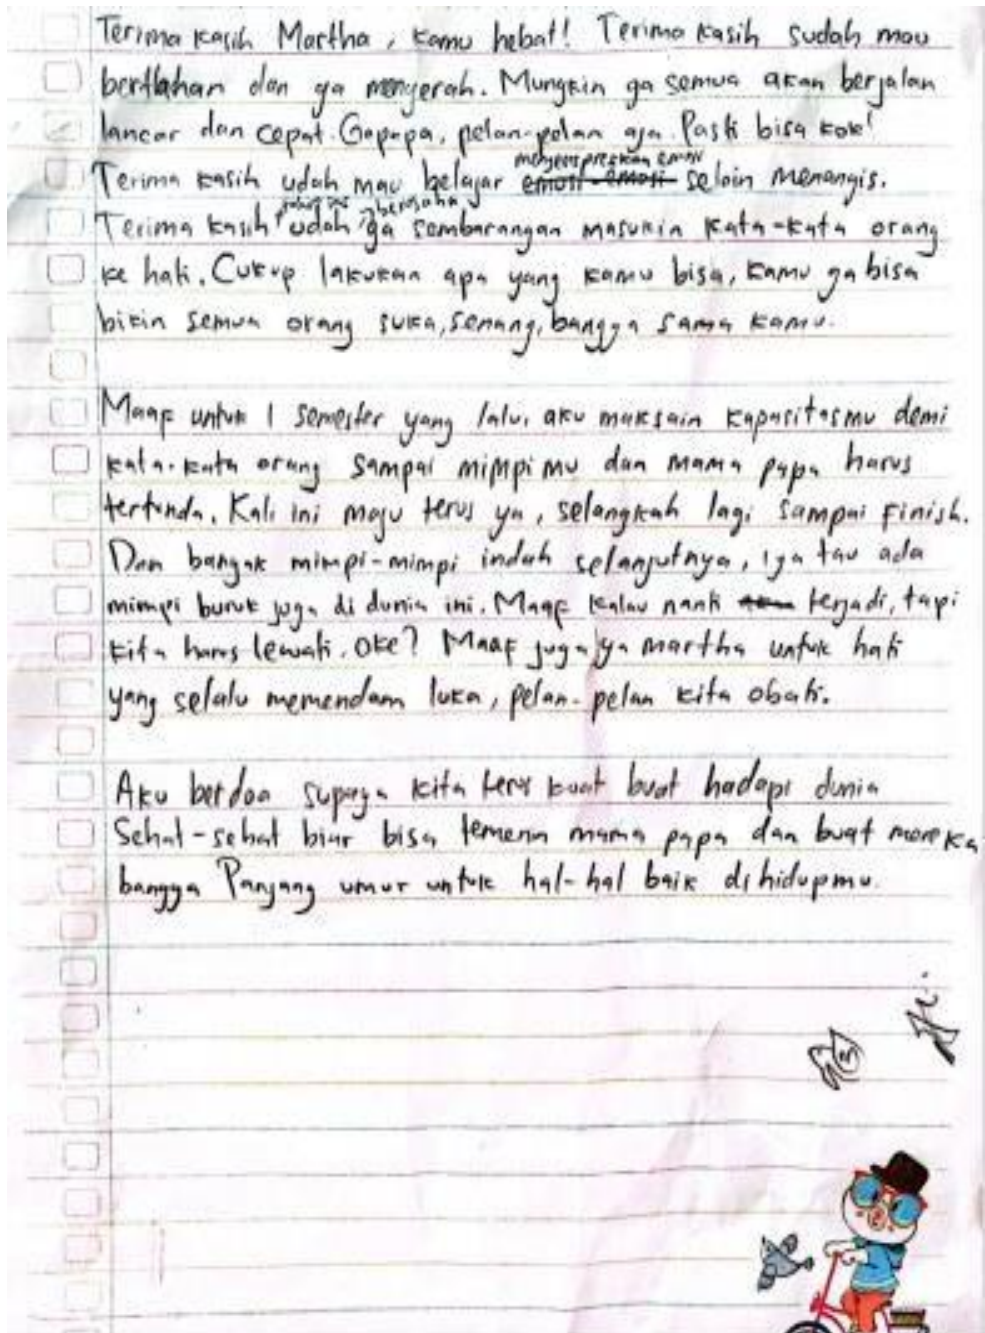 Terima kasih Martha, kamu hebat! Terima kasih sudah mau
bertahan dan ga menyerah. Mungkin ga semua akan berjalan
lancar dan cepat. Gapapa, pelan-pelan aja. Pasti bisa kok!
mengekspresikan emosi
Terima kasih udah mau belajar emosi-emosi selain menangis.
berusaha
Terima kasih udah ga sembarangan masukin kata-kata orang
ke hati. Cukup lakukan apa yang kamu bisa, kamu ga bisa
bikin semua orang suka, senang, bangga sama kamu.
Maaf untuk 1 semester yang lalu, aku maksain kapasitasmu demi
kata-kata orang sampai mimpimu dan mama papa harus
tertunda. Kali ini maju terus ya, selangkah lagi sampai finish.
Dan bangak mimpi-mimpi indah selanjutnya, iya tau ada
mimpi buruk juga di dunia ini. Maaf kalau nanti terjadi, tapi
kita harus lewati. oke? Maaf juga ya martha untuk hati
yang selalu memendam luka, pelan-pelan kita obati.
Aku berdoa supaya kita terus kuat buat hadapi dunia
Sehat-sehat biar bisa temenin mama papa dan buat mereka
bangga Panjang umur untuk hal-hal baik di hidupmu.